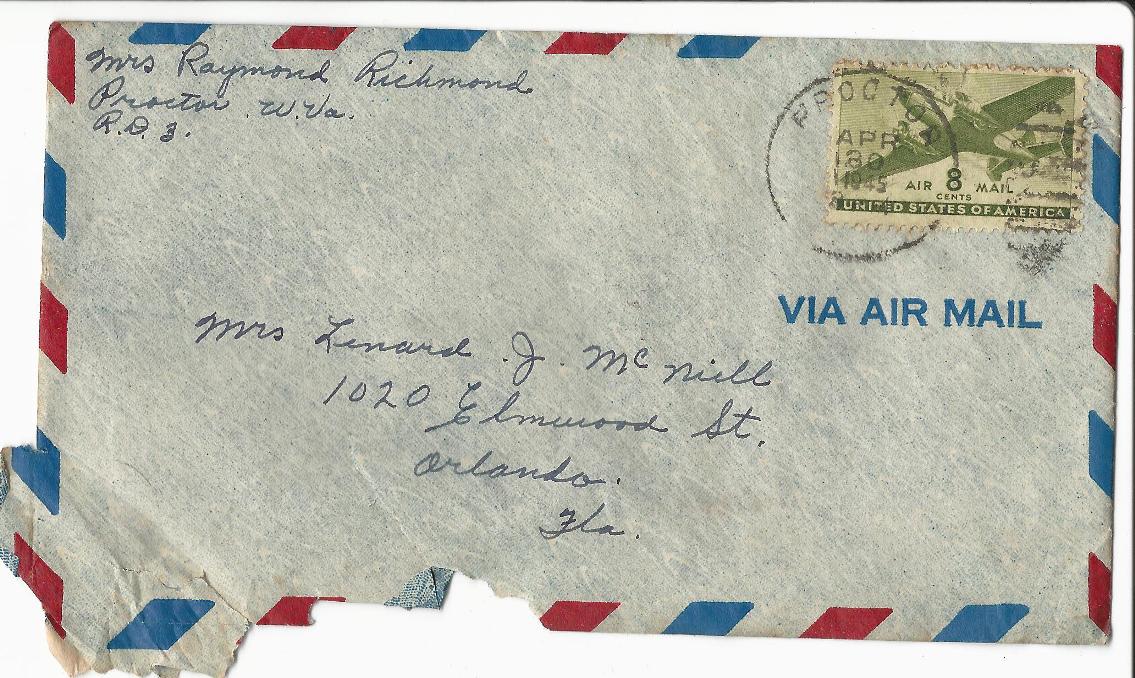 Mrs Raymond Richmond
Proctor W.Va.
R.D. 3.
PROCTO
APR
30
1945
AIR 8 MAIL
CENTS
UNITED STATES OF AMERICA
VIA AIR MAIL
Mrs Lenard J. McNiell
1020 Elmwood St.
Orlando.
Fla.